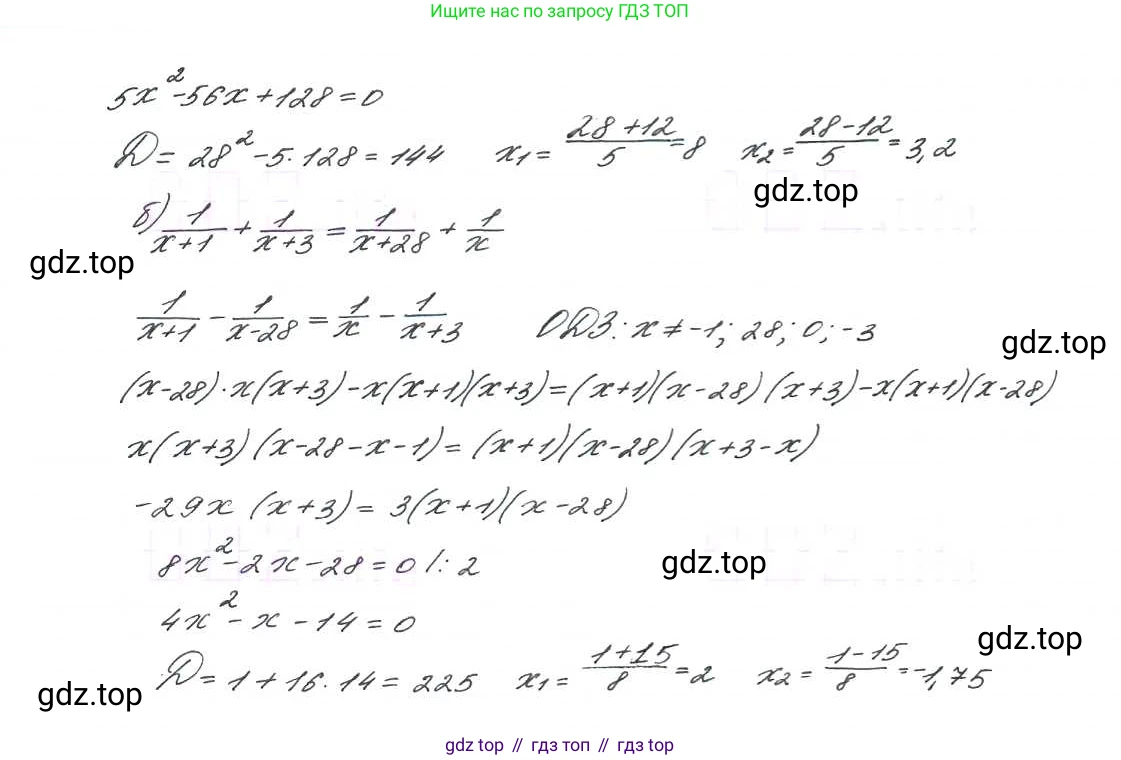 Ищите нас по запросу ГДЗ ТОП
5x²-56x+128=0
D=28²-5·128=144 x₁=(28+12)/5=8 x₂=(28-12)/5=3,2
gdz.top
б) 1/(x+1) + 1/(x+3) = 1/(x+28) + 1/x
gdz.top
1/(x+1) - 1/(x-28) = 1/x - 1/(x+3) ОДЗ: x≠-1; 28; 0; -3
gdz.top
(x-28)·x(x+3)-x(x+1)(x+3)=(x+1)(x-28)(x+3)-x(x+1)(x-28)
x(x+3)(x-28-x-1)=(x+1)(x-28)(x+3-x)
-29x(x+3)=3(x+1)(x-28)
8x²-2x-28=0 /:2
gdz.top
4x²-x-14=0
gdz.top
D=1+16·14=225 x₁=(1+15)/8=2 x₂=(1-15)/8=-1,75
gdz.top
gdz top // гдз топ // gdz top